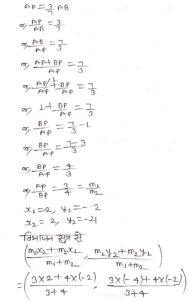 AP = 3/7 AB
या, AP/AB = 3/7
या, AB/AP = 7/3
या, AP+BP/AP = 7/3
या, AP/AP + BP/AP = 7/3
या, 1 + BP/AP = 7/3
या, BP/AP = 7/3 - 1
या, BP/AP = 7-3/3
या, BP/AP = 4/3
या, AP/BP = 3/4 = m₁/m₂
x₁ = -2, y₁ = -2
x₂ = 2, y₂ = -4
विभाजन सूत्र से
(m₁x₂ + m₂x₁/m₁+m₂, m₁y₂ + m₂y₁/m₁+m₂)
= (3×2+4×(-2)/3+4, 3×(-4)+4×(-2)/3+4)